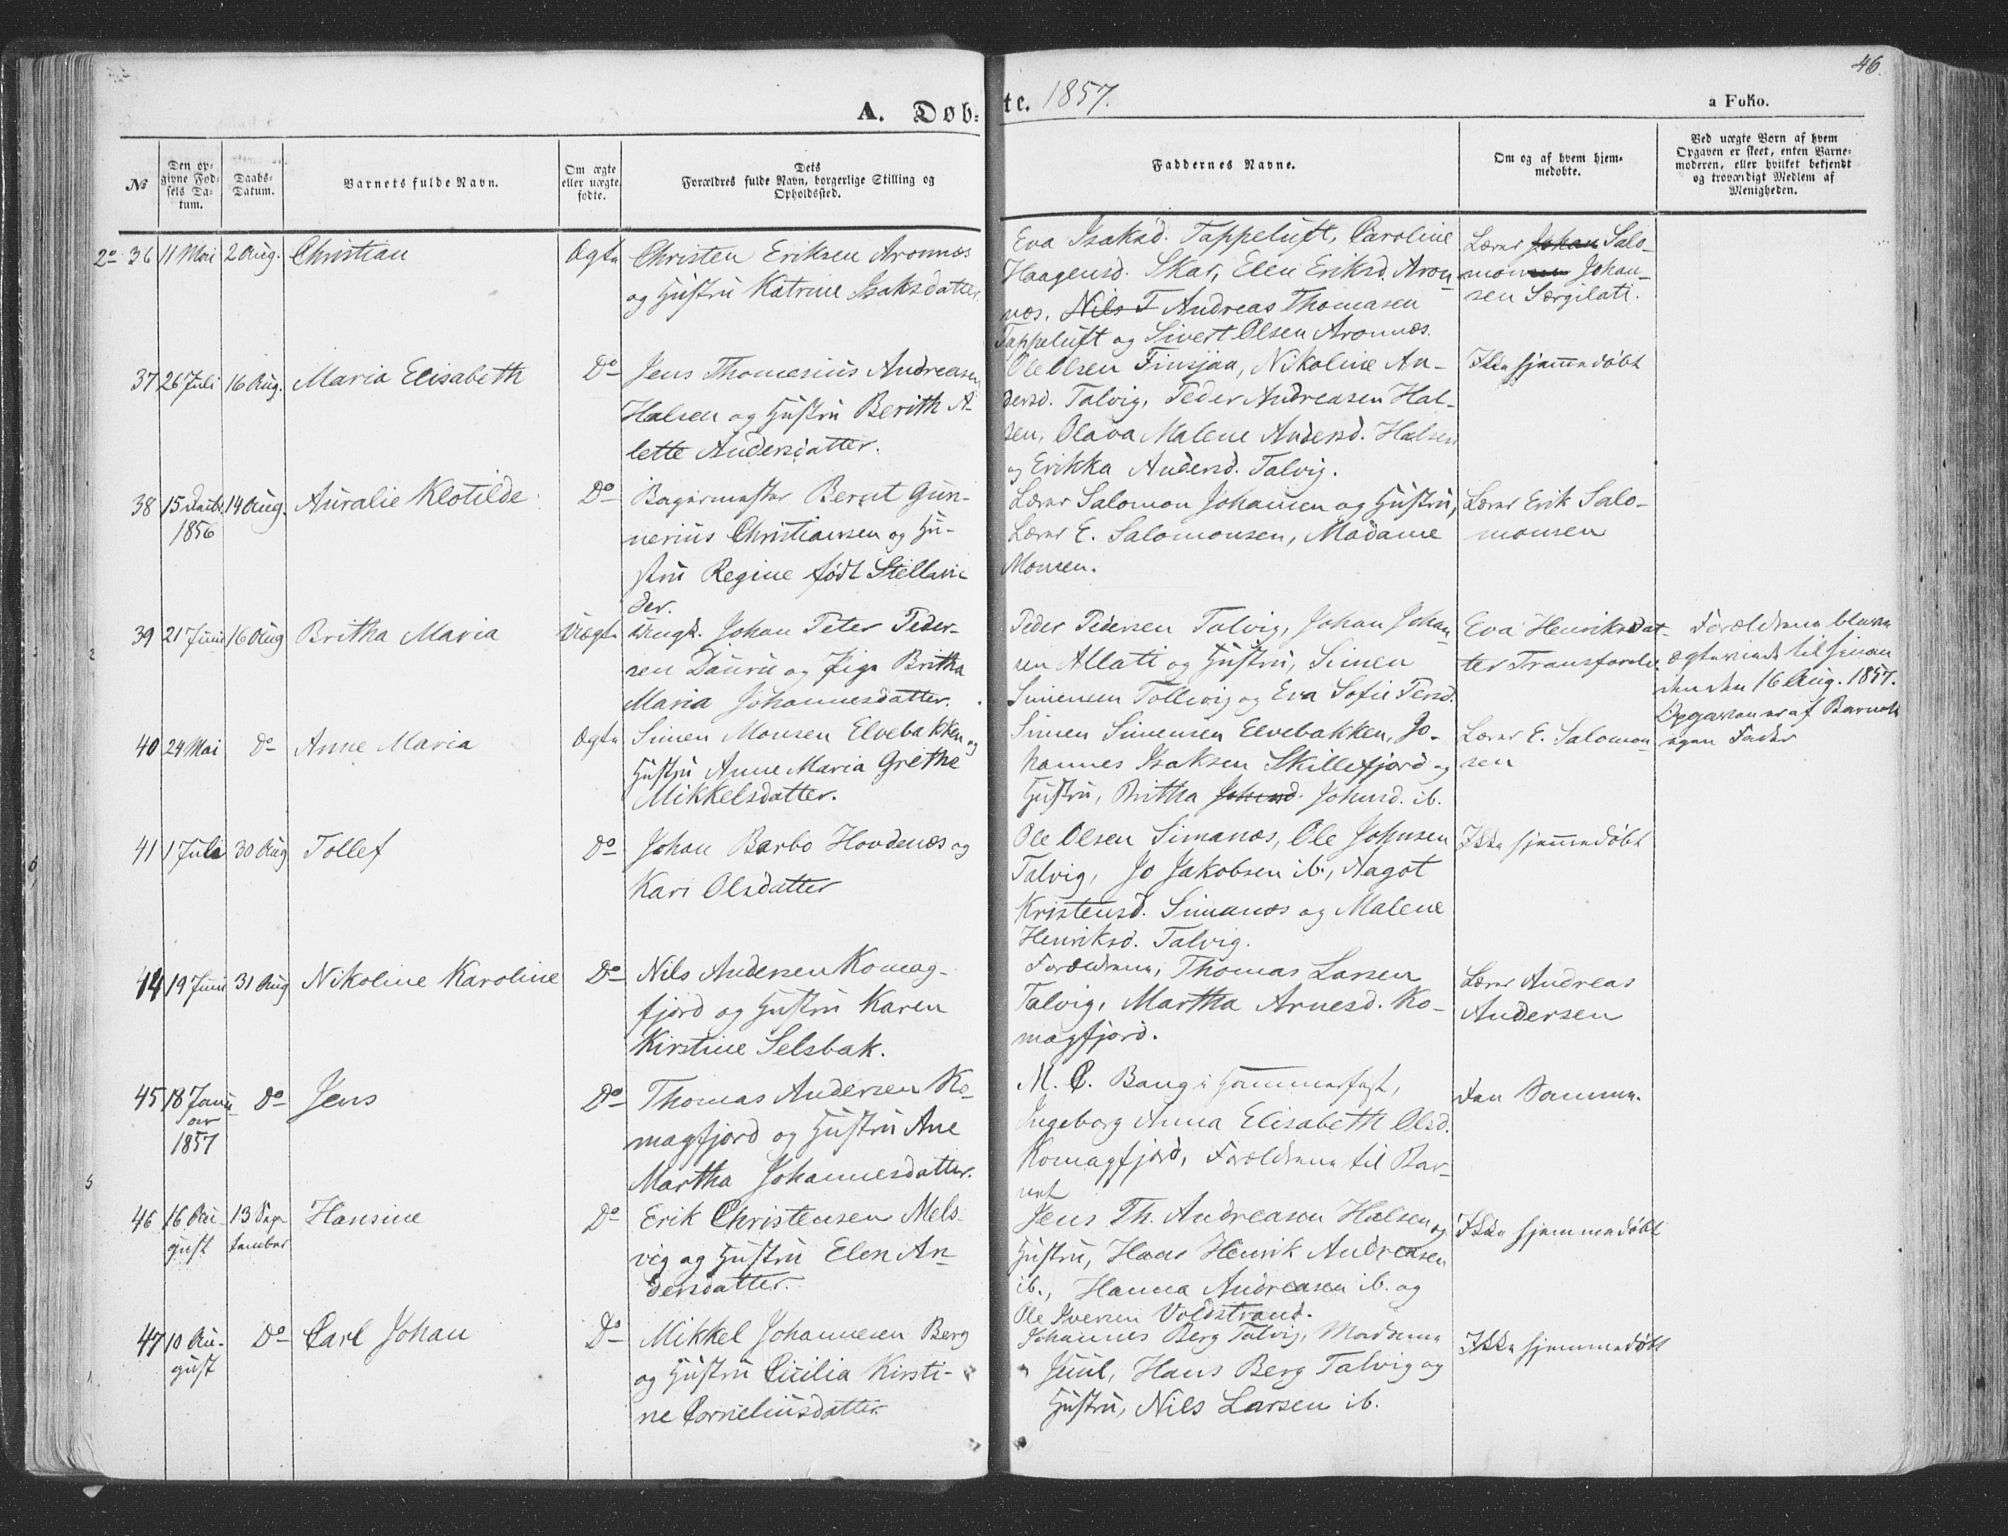 46.
A. Døb-
te. 1857.
a Folio.
No
Den op-
givne Fød-
sels Da-
tum.
Daabs-
Datum.
Barnets fulde Navn.
Om ægte
eller uægte
fødte.
Dets
Forældres fulde Navn, borgerlige Stilling og
Opholdssted.
Faddernes Navne.
Om og af hvem hjem-
medøbte.
Ved uægte Børn af hvem
Opgaven er skeet, enten Barne-
moderen, eller hvilket bekjendt
og troværdigt Medlem af
Menigheden.
2º 36 11 Mai 2 Aug. Christian Ægte
Christen Eriksen Aronnæs
og Hustru Katrine Isaksdatter
Eva Isaksd. Tappeluft, Caroline
Haagensd. Skar, Elen Eriksd. Aron-
næs. Nils T Andreas Thomasen
Tappeluft og Sivert Olsen Aronnæs.
Lærer Johan Salo-
monsen Johan-
sen Særgilati.
37 26 Juli 16 Aug. Maria Elisabeth Dº
Jens Thomesius Andreasen
Halsen og Hustru Berith A-
lette Andersdatter.
Ole Olsen Finsjaa, Nikoline An-
dersd. Talvig, Peder Andreasen Hal-
sen, Olava Malene Andersd. Halsen
og Erikka Andersd. Talvig.
Ikke hjemmedøbt
38 15 Decbr 1856 14 Aug. Auralie Klotilde Dº
Bagermester Bernt Gun-
nerius Christiansen og Hu-
stru Regine født Stellan-
der.
Lærer Salomon Johansen og Hustru,
Lærer E. Salomonsen, Madame
Monsen.
Lærer Erik Salo-
monsen
39 21 Juni 16 Aug Britha Maria Uægte
Ungk. Johan Peter Peder-
sen Dauru og Pige Britha
Maria Johannesdatter.
Peder Pedersen Talvig, Johan Johan-
sen Allati og Hustru, Simen
Simensen Tollevig og Eva Sofie Persd.
Eva Henriksdat-
ter Transfarelv.
Forældrene bleve
ægteviede til hinan-
den den 16 Aug. 1857.
Opgaven er af Barnets
egen Fader
40 24 Mai Dº Anne Maria Ægte
Simen Monsen Elvebakken og
Hustru Anne Maria Grethe
Mikkelsdatter.
Simen Simensen Elvebakken, Jo-
hannes Isaksen Skillefjord og
Hustru, Britha Johnsd. Johnsd. ib.
Lærer E. Salomon-
sen
41 1 Juli 30 Aug Tollef Dº
Johan Barbo Hovdenæs og
Kari Olsdatter
Ole Olsen Simanæs, Ole Johnsen
Talvig, Jo Jakobsen ib., Aagot
Kristensd. Simanæs og Malene
Henriksd. Talvig.
Ikke hjemmedøbt
44 19 Juni 31 Aug Nikoline Karoline Dº
Nils Andersen Komag-
fjord og Hustru Karen
Kirstine Selsbak.
Forældrene, Thomas Larsen
Talvig, Martha Arnesd. Ko-
magfjord.
Lærer Andreas
Andersen
45 18 Janu-
ar
1857 Dº Jens Dº
Thomas Andersen Ko-
magfjord og Hustru Ane
Martha Johannesdatter.
M. C. Bang i Hammerfest,
Ingeborg Anna Elisabeth Olsd.
Komagfjord, Forældrene til Bar-
net
Den Samme.
46 16 Au-
gust 13 Sep-
tember Hansine Dº
Erik Christensen Mels-
vig og Hustru Elen An-
dersdatter.
Jens Th. Andreasen Halsen og
Hustru, Hans Henrik Andreasen
ib., Hanna Andreasen ib. og
Ole Iversen Voldstrand.
Ikke hjemmedøbt
47 10 Au-
gust Dº Carl Johan Dº
Mikkel Johannesen Berg
og Hustru Cicilia Kirsti-
ne Corneliusdatter.
Johannes Berg Talvig, Madame
Juul, Hans Berg Talvig og
Hustru, Nils Larsen ib.
Ikke hjemmedøbt